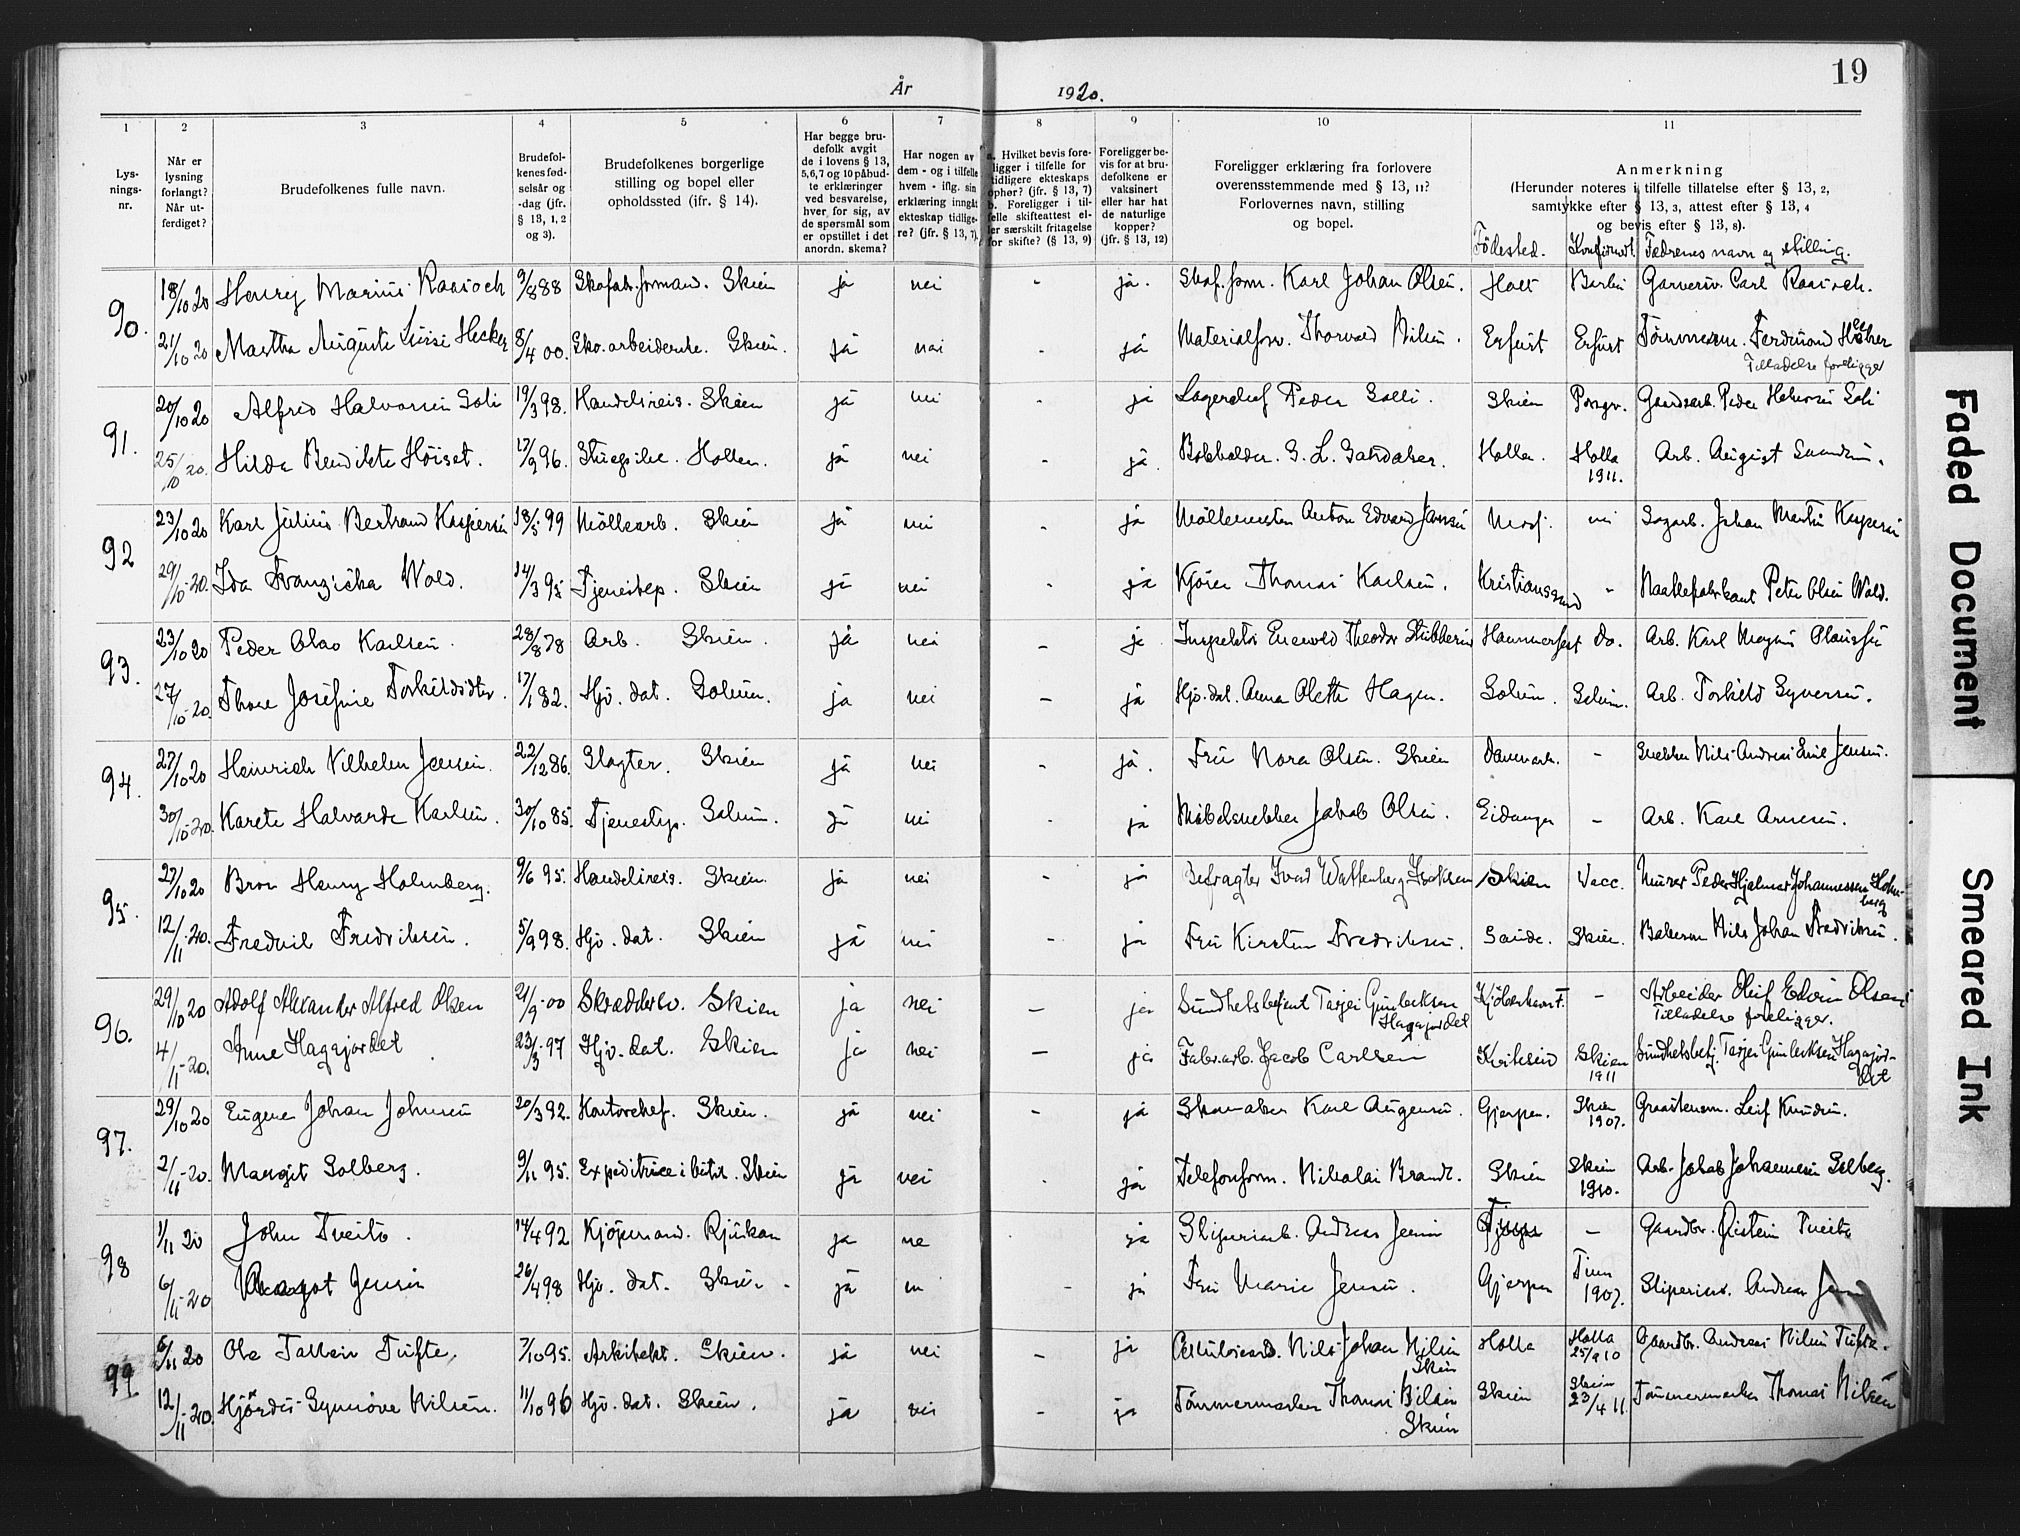 År 1920.
19
1 2 3 4 5 6 7 8 9 10 11
Lys-
nings-
nr.
Når er
lysning
forlangt?
Når ut-
ferdiget?
Brudefolkenes fulle navn.
Brudefol-
kenes fød-
selsår og
-dag (jfr.
§ 13, 1, 2
og 3).
Brudefolkenes borgerlige
stilling og bopel eller
opholdssted (ifr. § 14).
Har begge bru-
defolk avgit
de i lovens § 13,
5,6,7 og 10 påbud-
te erklæringer
ved besvarelse,
hver for sig, av
de spørsmål som
er opstillet i det
anordn. skema?
Har nogen av
dem - og i tilfelle
hvem - iflg. sin
erklæring inngåt
ekteskap tidlige-
re? (jfr. § 13, 7).
a. Hvilket bevis fore-
ligger i tilfelle for
tidligere ekteskaps
ophør? (jfr. § 13, 7)
b. Foreligger i til-
felle skifteattest el-
ler særskilt fritagelse
for skifte? (§ 13, 9)
Foreligger be-
vis for at bru-
defolkene er
vaksinert
eller har hat
de naturlige
kopper?
(jfr. § 13, 12)
Foreligger erklæring fra forlovere
overensstemmende med § 13, 11?
Forlovernes navn, stilling
og bopel.
Anmerkning
(Herunder noteres i tilfelle tillatelse efter § 13, 2,
samtykke efter § 13, 3, attest efter § 13, 4
og bevis efter § 13, 8).
Fødested. Konfirmert. Fædrenes navn og stilling.
90. 18/10 20 Henry Marius 9/8 88 Skofabr.formand. Skien ja nei - ja. Karl Johan Olsen. Holt Berlin Carl
21/10 20 Martha Auguste Hecker 8/4 00. Sko.arbeiderske. Skien. ja nei - ja Thorvald Nilsen. Erfurt Erfurt Ferdinand
Tilladelse foreligger
91. 20/10 20 Alfred Halvorsen Soli 19/3 98. Handelsreis. Skien ja nei - ja Lagerchef Peder Solli. Skien Porsgr. Gaardsarb. Peder Halvorsen Soli
25/10 20. Hilda Bendikte Høiset. 17/9 96. Holla. ja nei - ja. Bokholder G. L. Holla. Holla Arb. August
1911.
92 23/10 20 Karl Julius Bertrand Kaspersen 18/5 99 Møllearb. Skien ja nei - ja Møllemester Anton Edvard Jansen Mosj. nei Sagarb. Johan Martin Kaspersen
29/10-20. Ida Franziska Wold. 14/3 95 Tjenestep. Skien ja nei - ja Kjører Thomas Karlsen. Kristianssund - Peter Olsen Wold.
93. 23/10 20 Peder Olao Karlsen. 28/8 78 Arb. Skien. ja nei - ja Enevold Theodor Hammerfest do. Arb. Karl Magnus
27/10-20. Thora Josefine Torkildsdtr. 17/1 82. Hjv. dat. Solum. ja nei - ja Hjv. dat. Anna Olette Hagen. Solum. Solum. Arb. Torkild Syversen.
94. 27/10 20 Heinrich Vilhelm Jensen. 22/12 86. Slagter. Skien ja nei - ja. Fru Nora Olsen. Skien Danmark. - Snekker Nils Andreas Emil Jensen.
30/10-20. Karete Halvarda Karlsen. 30/10 85. Tjenestep. Solum. ja nei - ja Møbelsnekker Jakob Olsen. Eidanger - Arb. Karl Arnesen.
95. 27/10 20 Bror Henry Holmberg. 9/6 95. Handelsreis. Skien. ja nei - ja Befragter Ivar Wattenberg Isaksen Skien Vacc. Murer Peder Hjalmar Johannessen Holm-
berg
12/11-20. Fredvil Fredriksen. 5/9 98. Hjv. dat. Skien ja nei - ja Fru Kirsten Fredriksen. Sande. Skien. Nils Johan Fredriksen.
96. 29/10 20 Adolf Alexander Alfred Olsen 21/9-00 Skræddersv. Skien ja nei - ja Sundhetsbetjent Tarjei Gunleiksen Hagajordet - Arbeider Olaf Edvin Olsen
Tilladelse foreligger.
4/11-20. Anne Hagajordet 23/3-97 Hjv. dat. Skien ja nei - ja Fabr.arb. Jacob Carlsen Kviteseid Skien 1911 Sundhetsbetj. Tarjei Gunleiksen Hagajor-
det
97. 29/10 20 Eugene Johan Johnsen 20/3 92. Kontorchef. Skien. ja nei - ja Skomaker Karl Augensen. Gjerpen. Skien 1907. Leif Knudsen.
2/11-20. Margit Solberg. 9/11 95. Expeditrice i Skien ja nei - ja Telefonform. Nikolai Brandt. Skien Skien 1910. Arb. Jakob Johannesen Solberg.
98 1/11 20 John Tveito. 14/4 92 Kjøpmand. Rjukan ja ne ja Sliperiarb. Andreas Jensen - Gaardbr. Øistein Tveito
6/11-20 Margot Jensen 26/4 98 Hjv. dat. Skien. ja - ja Fru Marie Jensen. Gjerpen 1907. Sliperiarb. Andreas Jensen
99. 6/11 20 Ole Tallein Tufte. 7/10 95. Arkitekt. Skien. ja nei - ja Nils Johan Nilsen Skien Holla Holla 25/9 10 Gaardbr. Andreas Nilsen Tufte.
12/11-20. Hjørdis Synnøve Nilsen. 11/10 96 Hjv. dat. Skien. ja nei - ja Tømmermerker Thomas Nilsen Skien Skien Skien 23/4 11. Tømmermerker Thomas Nilsen
Faded Document
Smeared Ink